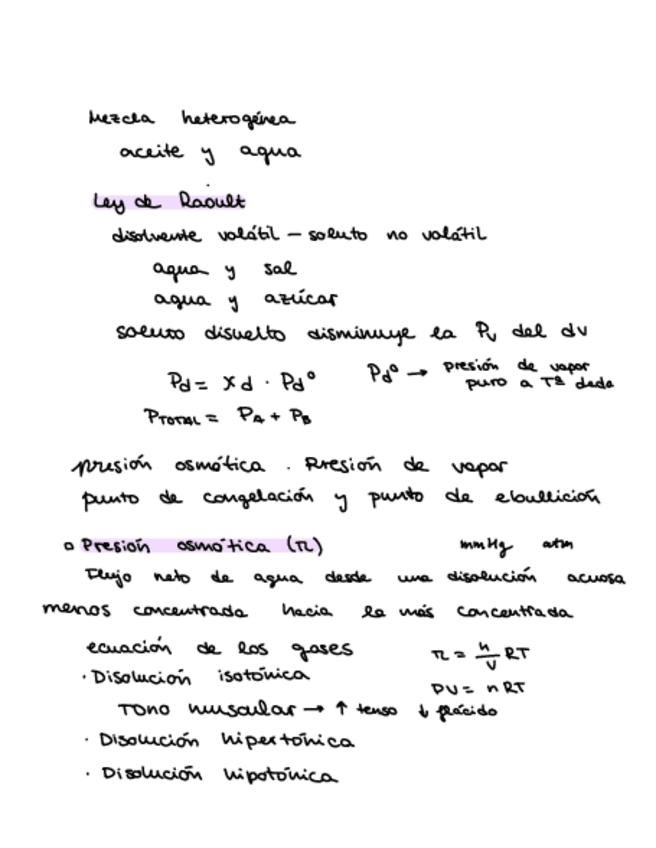 Mezcla heterogénea
aceite y agua
Ley de Raoult
disolvente volátil – soluto no volátil
agua y sal
agua y azúcar
soluto disuelto disminuye la Pv del dv
Pd = xd · Pd° Pd° → presión de vapor
puro a Tª dada
PTOTAL = PA + PB
presión osmótica . Presión de vapor
punto de congelación y punto de ebullición
▫ Presión osmótica (π) mmHg atm
Flujo neto de agua desde una disolución acuosa
menos concentrada hacia la más concentrada
ecuación de los gases π = n/V RT
· Disolución isotónica
PV = nRT
Tono muscular → ↑ tenso ↓ flácido
· Disolución hipertónica
· Disolución hipotónica